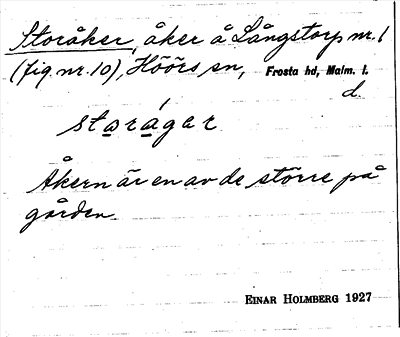 Storåker, åker å Långstorp nr. 1
(fig. nr. 10), Höörs sn, Frosta hd, Malm. l.
d.
storáger
Åkern är en av de större på
gården
EINAR HOLMBERG 1927